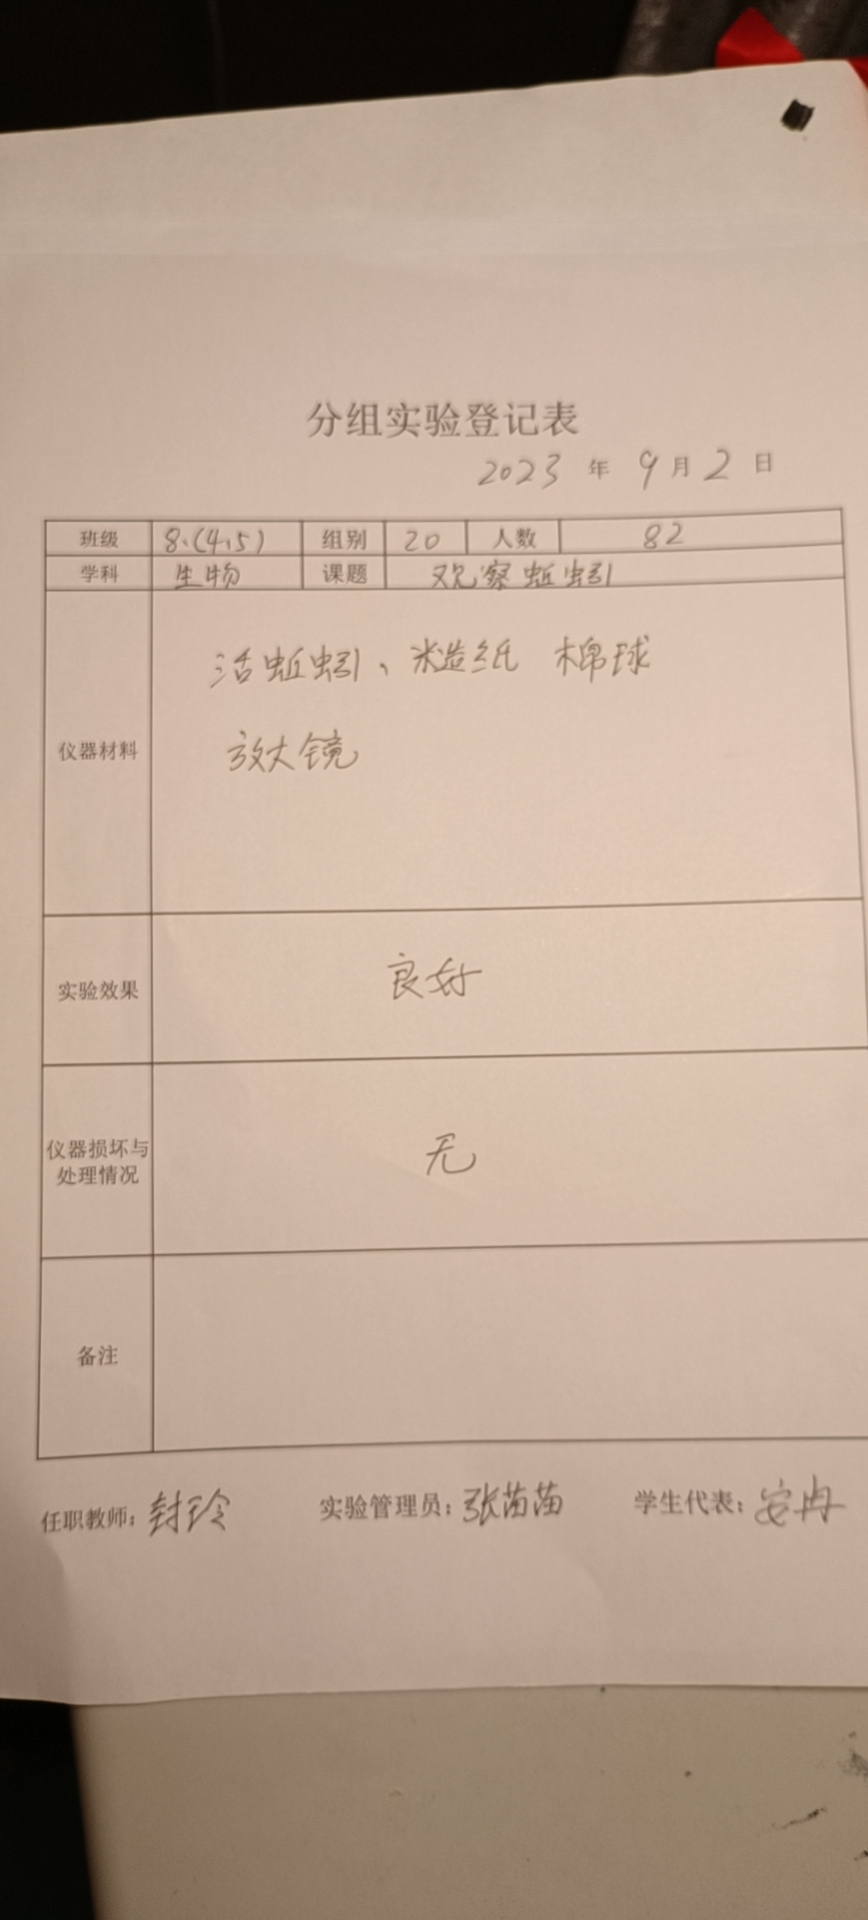 分组实验登记表
2023 年 9 月 2 日
班级 8.(4,5) 组别 20 人数 82
学科 生物 课题 观察蚯蚓
仪器材料 活蚯蚓、糙纸 棉球
放大镜
实验效果 良好
仪器损坏与
处理情况 无
备注
任职教师：封玲 实验管理员：张苗苗 学生代表：安冉